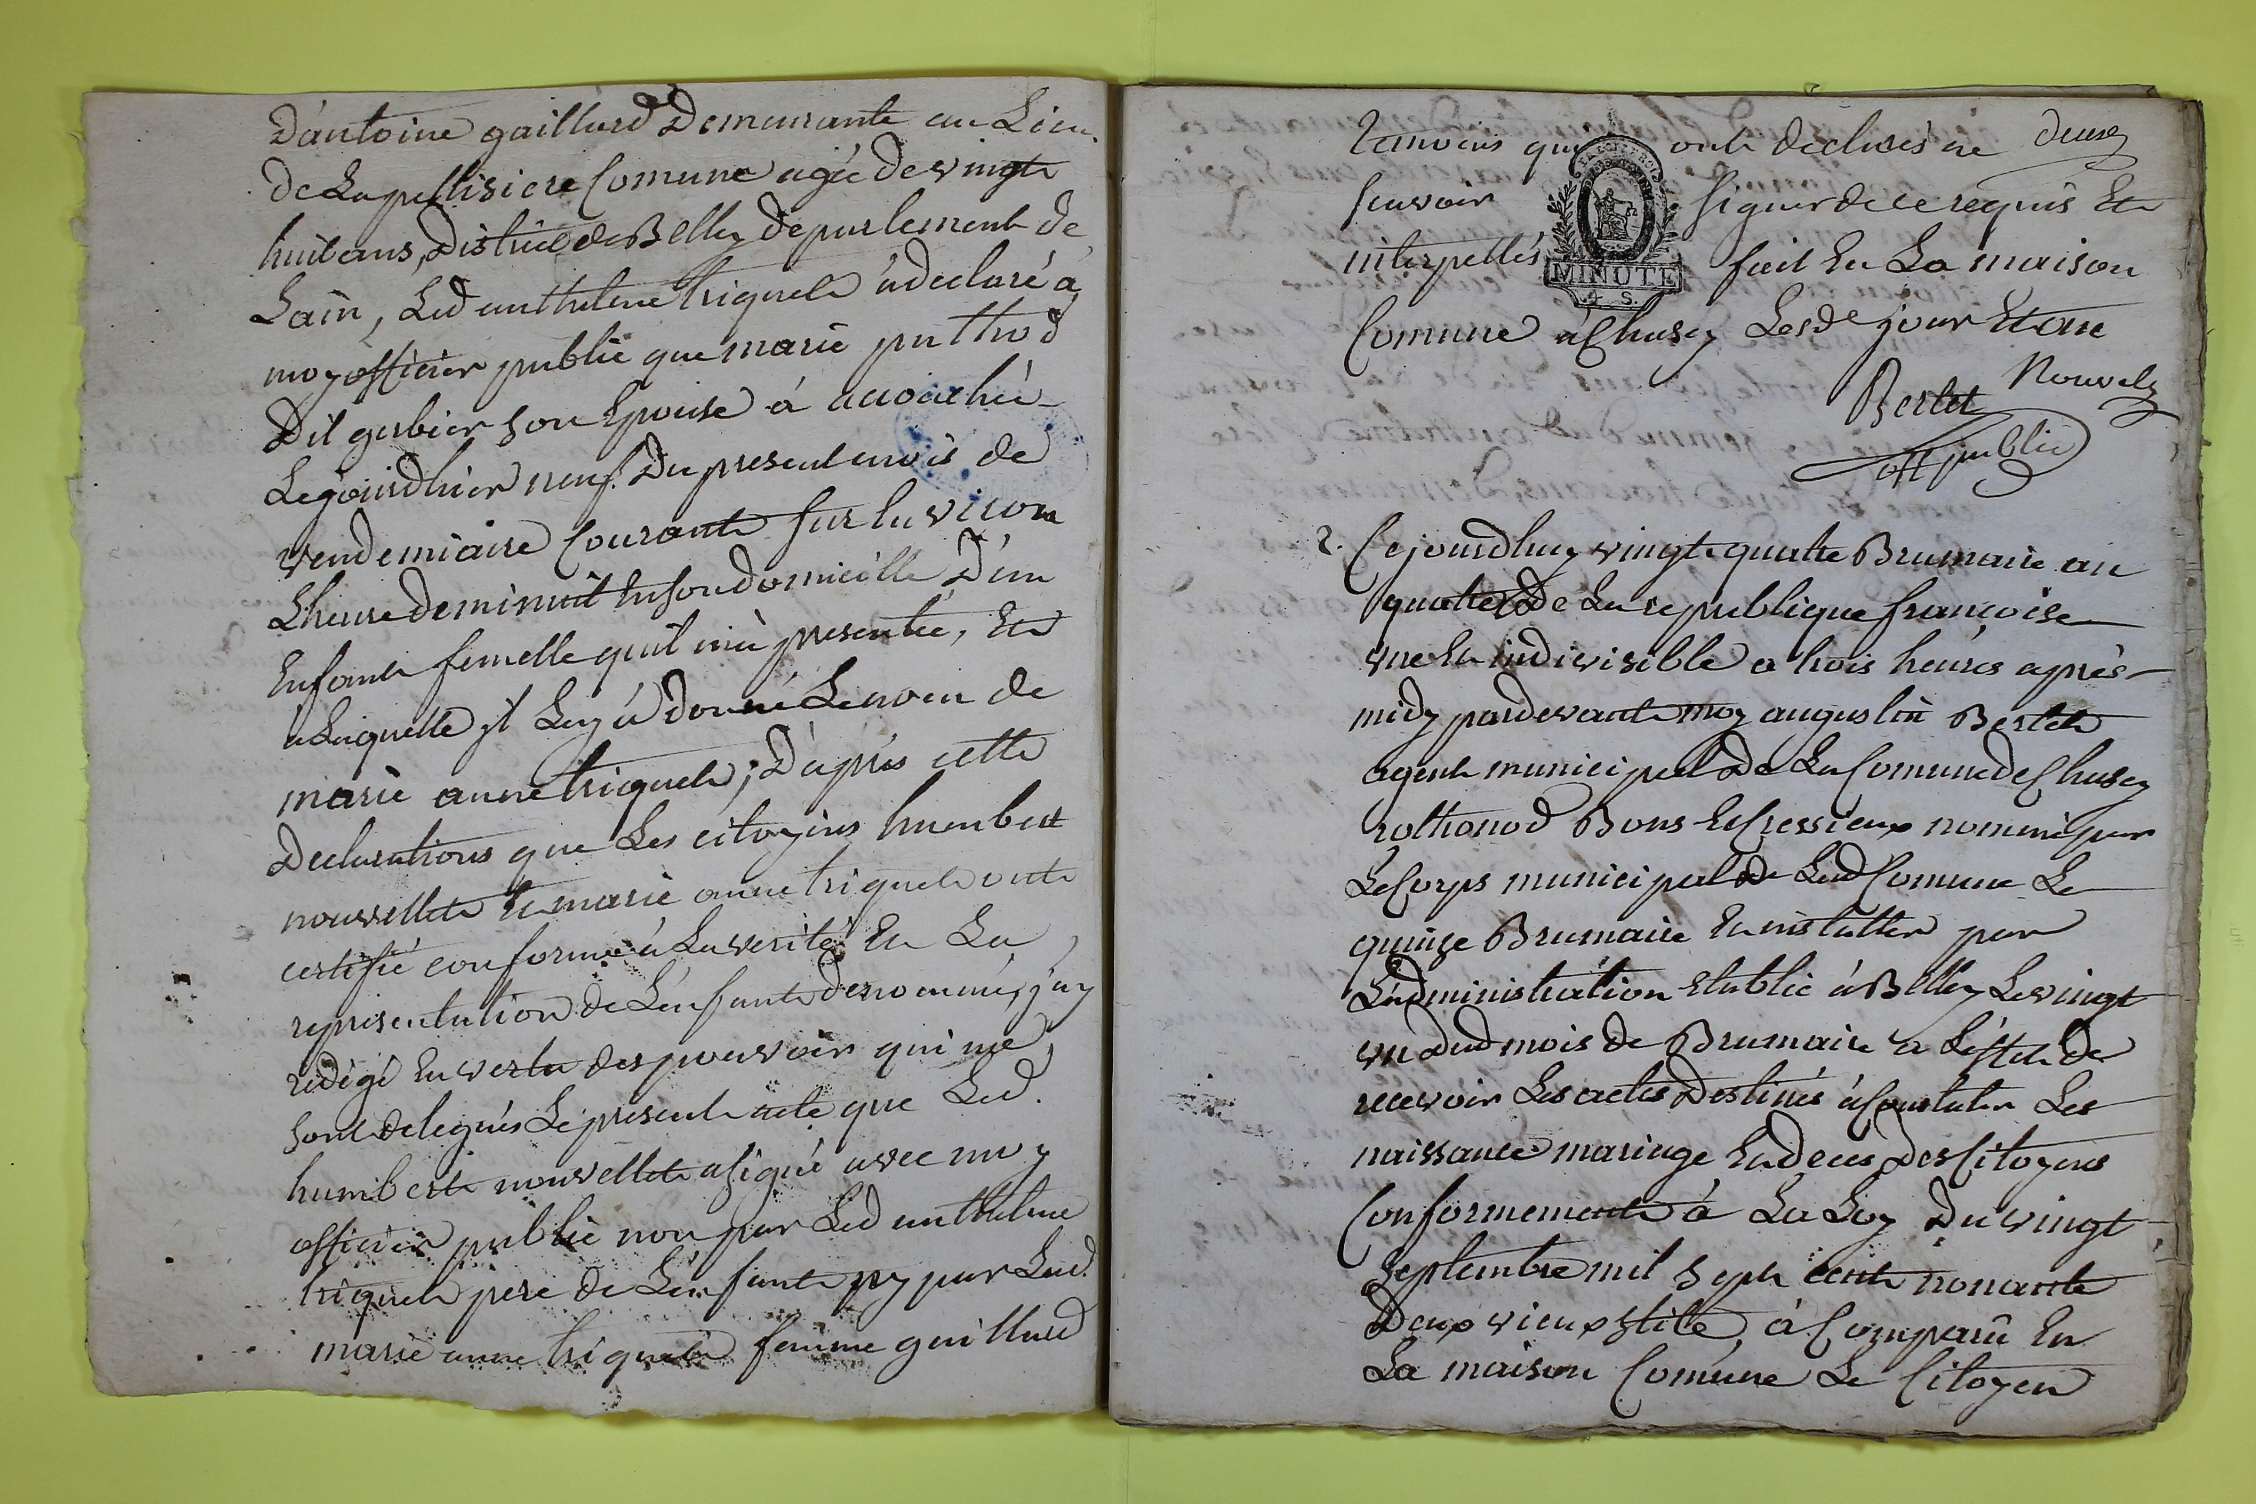 D'antoine gaillard Demeurante au Lieu
de Lapellisiere Comune agée de vingt
huit ans, District de Belley departement de
Lain, Led anthelme triquet a declaré à
moy officier public que marie puthod
Dit gerbier son Epouse à accouchée
Lejourdhier neuf Du present mois de
vendemiaire Courant sur Lu viron
Lheure de minuit En son domicille D'un
Enfant femelle quil m'a presentée, Et
a Laquelle jl Luy a donné Le nom de
marie anne triquet; D'après cette
Declarations que Les citoyens humbert
nouvellet Et marie anne triquet ont
certifié conforme à La verité Et La
representation de L'enfant denommé, j'ay
redigé En vertu des pouvoir qui me
sont delegués Le present acte que Led.
humbert nouvellet a signé avec moy
officier public non par Led anthelme
triquet pere de L'enfant ny par Lad.
marie anne triquet femme gaillard
temoins qui ont declarés ne deux
scavoir signer de ce requis Et
interpellés fait En La maison
MINUTE
Comune à Chusey Lesd jour Et an
Bertet Nouvelet
off public
2. Cejourdhuy vingt quatre Brumaire an
quatre De La republique françoise
une Et indivisible a trois heures après
midy pardevant moy augustin Bertet
agent municipal De La Comune de Chusey
rothonod Bons Et Cressieux nommé par
Le Corps municipal de Lad Comune Le
quinze Brumaire Et installer par
L'administration Etablie à Belley Le vingt
un Dud mois de Brumaire a L'effet de
recevoir Les actes Destinés à Constater Les
naissance mariage Et deces Des Citoyens
Conformement à La Loy Du vingt
septembre mil sept cent nonante
Deux vieux stile, à Comparu En
La maison Comune Le Citoyen